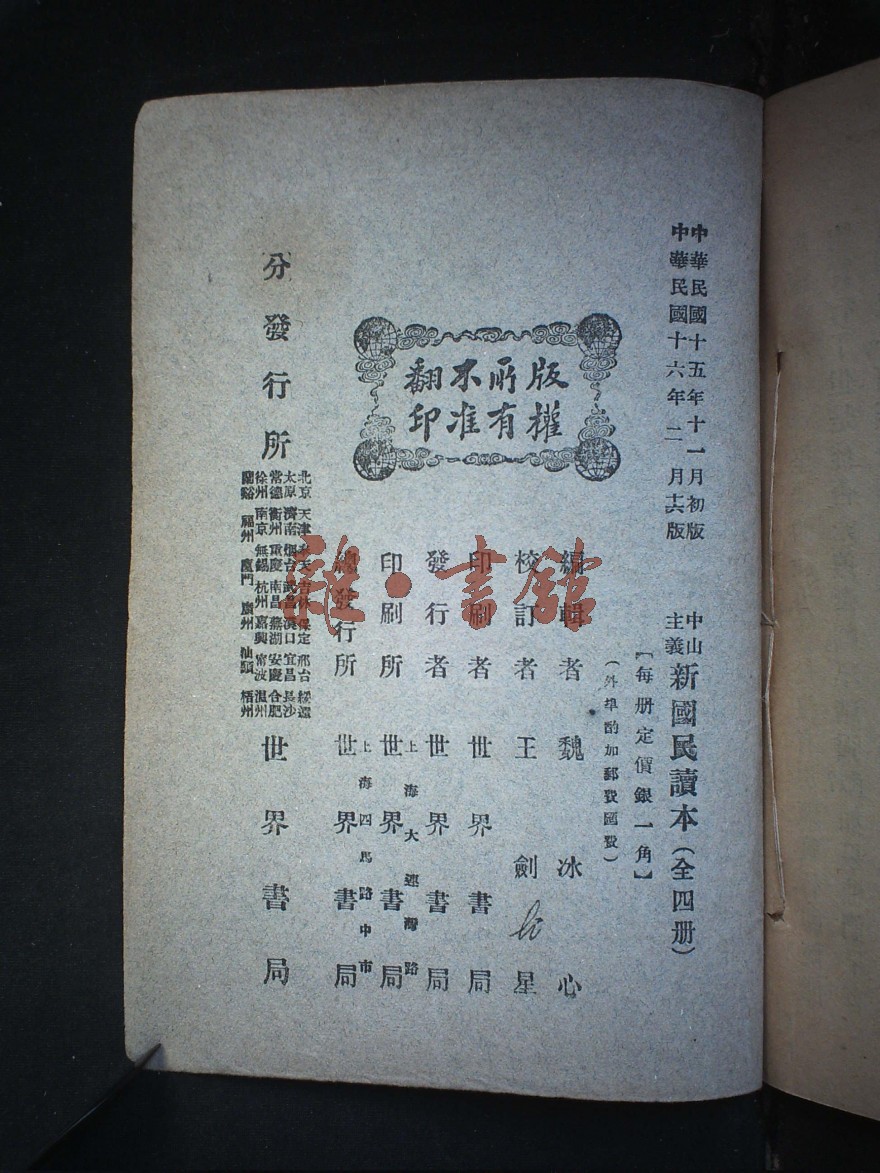 中華民國十五年十一月初版
中華民國十六年二月十六版
中山主義新國民讀本（全四册）
【每册定價銀一角】
（外埠酌加郵費匯費）
版權所有
不准翻印
編輯者 魏冰心
校訂者 王劍星
印刷者 世界書局
發行者 世界書局
印刷所 上海大連灣路 世界書局
總發行所 上海四馬路中市 世界書局
分發行所
北京 天津 奉天 吉林 保定 邢台 綏遠
太原 濟南 烟台 武昌 漢口 宜昌 長沙
常德 衡州 重慶 南昌 蕪湖 安慶 合肥
徐州 南京 無錫 杭州 嘉興 甯波 温州
蘭谿 福州 廈門 廣州 汕頭 梧州
世界書局
雜·書館